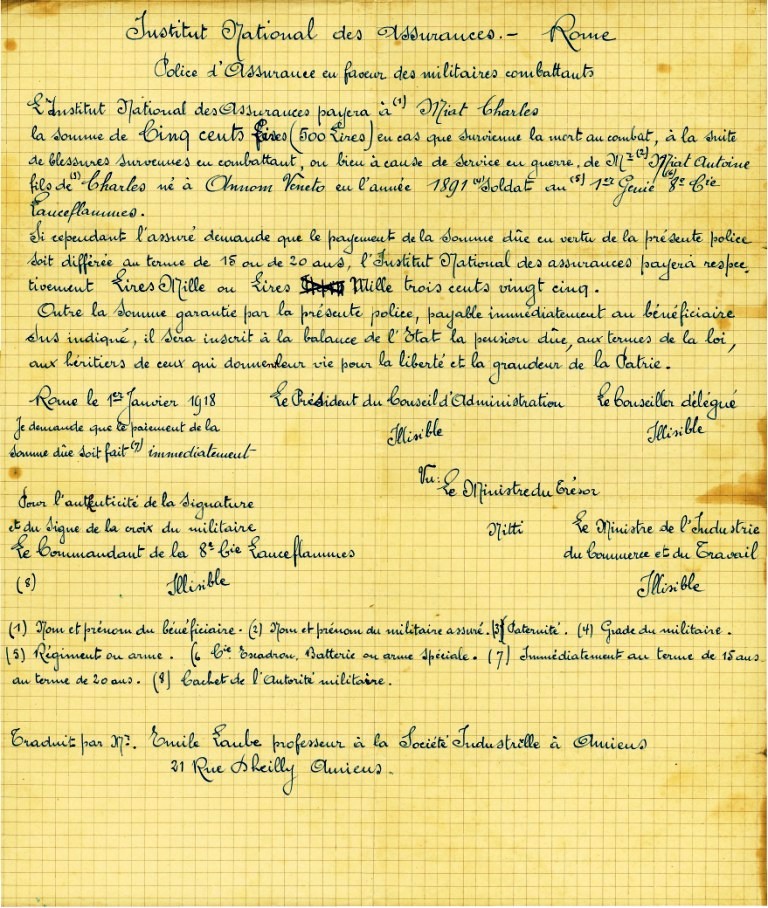 Institut National des Assurances. - Rome
Police d'Assurance en faveur des militaires combattants
L'Institut National des Assurances payera à (1) Miat Charles
la somme de Cinq cents Lires (500 Lires) en cas que survienne la mort au combat, à la suite
de blessures survenues en combattant, ou bien à cause de service en guerre, de Mr (2) Miat Antoine
fils de (3) Charles né à Annom Veneto en l'année 1891 (4) Soldat au (5) 1er Génie (6) 8e Cie
Lanceflammes.
Si cependant l'assuré demande que le payement de la somme dûe en vertu de la présente police
soit différée au terme de 15 ou de 20 ans, l'Institut National des assurances payera respec-
tivement Lires Mille ou Lires Mille trois cents vingt cinq.
Outre la somme garantie par la présente police, payable immédiatement au bénéficiaire
sus indiqué, il sera inscrit à la balance de l'Etat la pension dûe, aux termes de la loi,
aux héritiers de ceux qui donnent leur vie pour la liberté et la grandeur de la Patrie.
Rome le 1er Janvier 1918 Le Président du Conseil d'Administration Le Conseiller délégué
Je demande que le paiement de la Illisible Illisible
somme dûe soit fait (7) immédiatement
Vu: Le Ministre du Trésor
Pour l'authenticité de la signature
et du signe de la croix du militaire Nitti Le Ministre de l'Industrie
Le Commandant de la 8e Cie Lanceflammes du Commerce et du Travail
(8) Illisible Illisible
(1) Nom et prénom du bénéficiaire. (2) Nom et prénom du militaire assuré. (3) Paternité. (4) Grade du militaire.
(5) Régiment ou arme. (6 Cie Escadron, Batterie ou arme spéciale. (7) Immédiatement au terme de 15 ans
au terme de 20 ans. (8) Cachet de l'Autorité militaire.
Traduit par Mr. Emile Laube professeur à la Société Industrille à Amiens
21 Rue Dheilly Amiens.